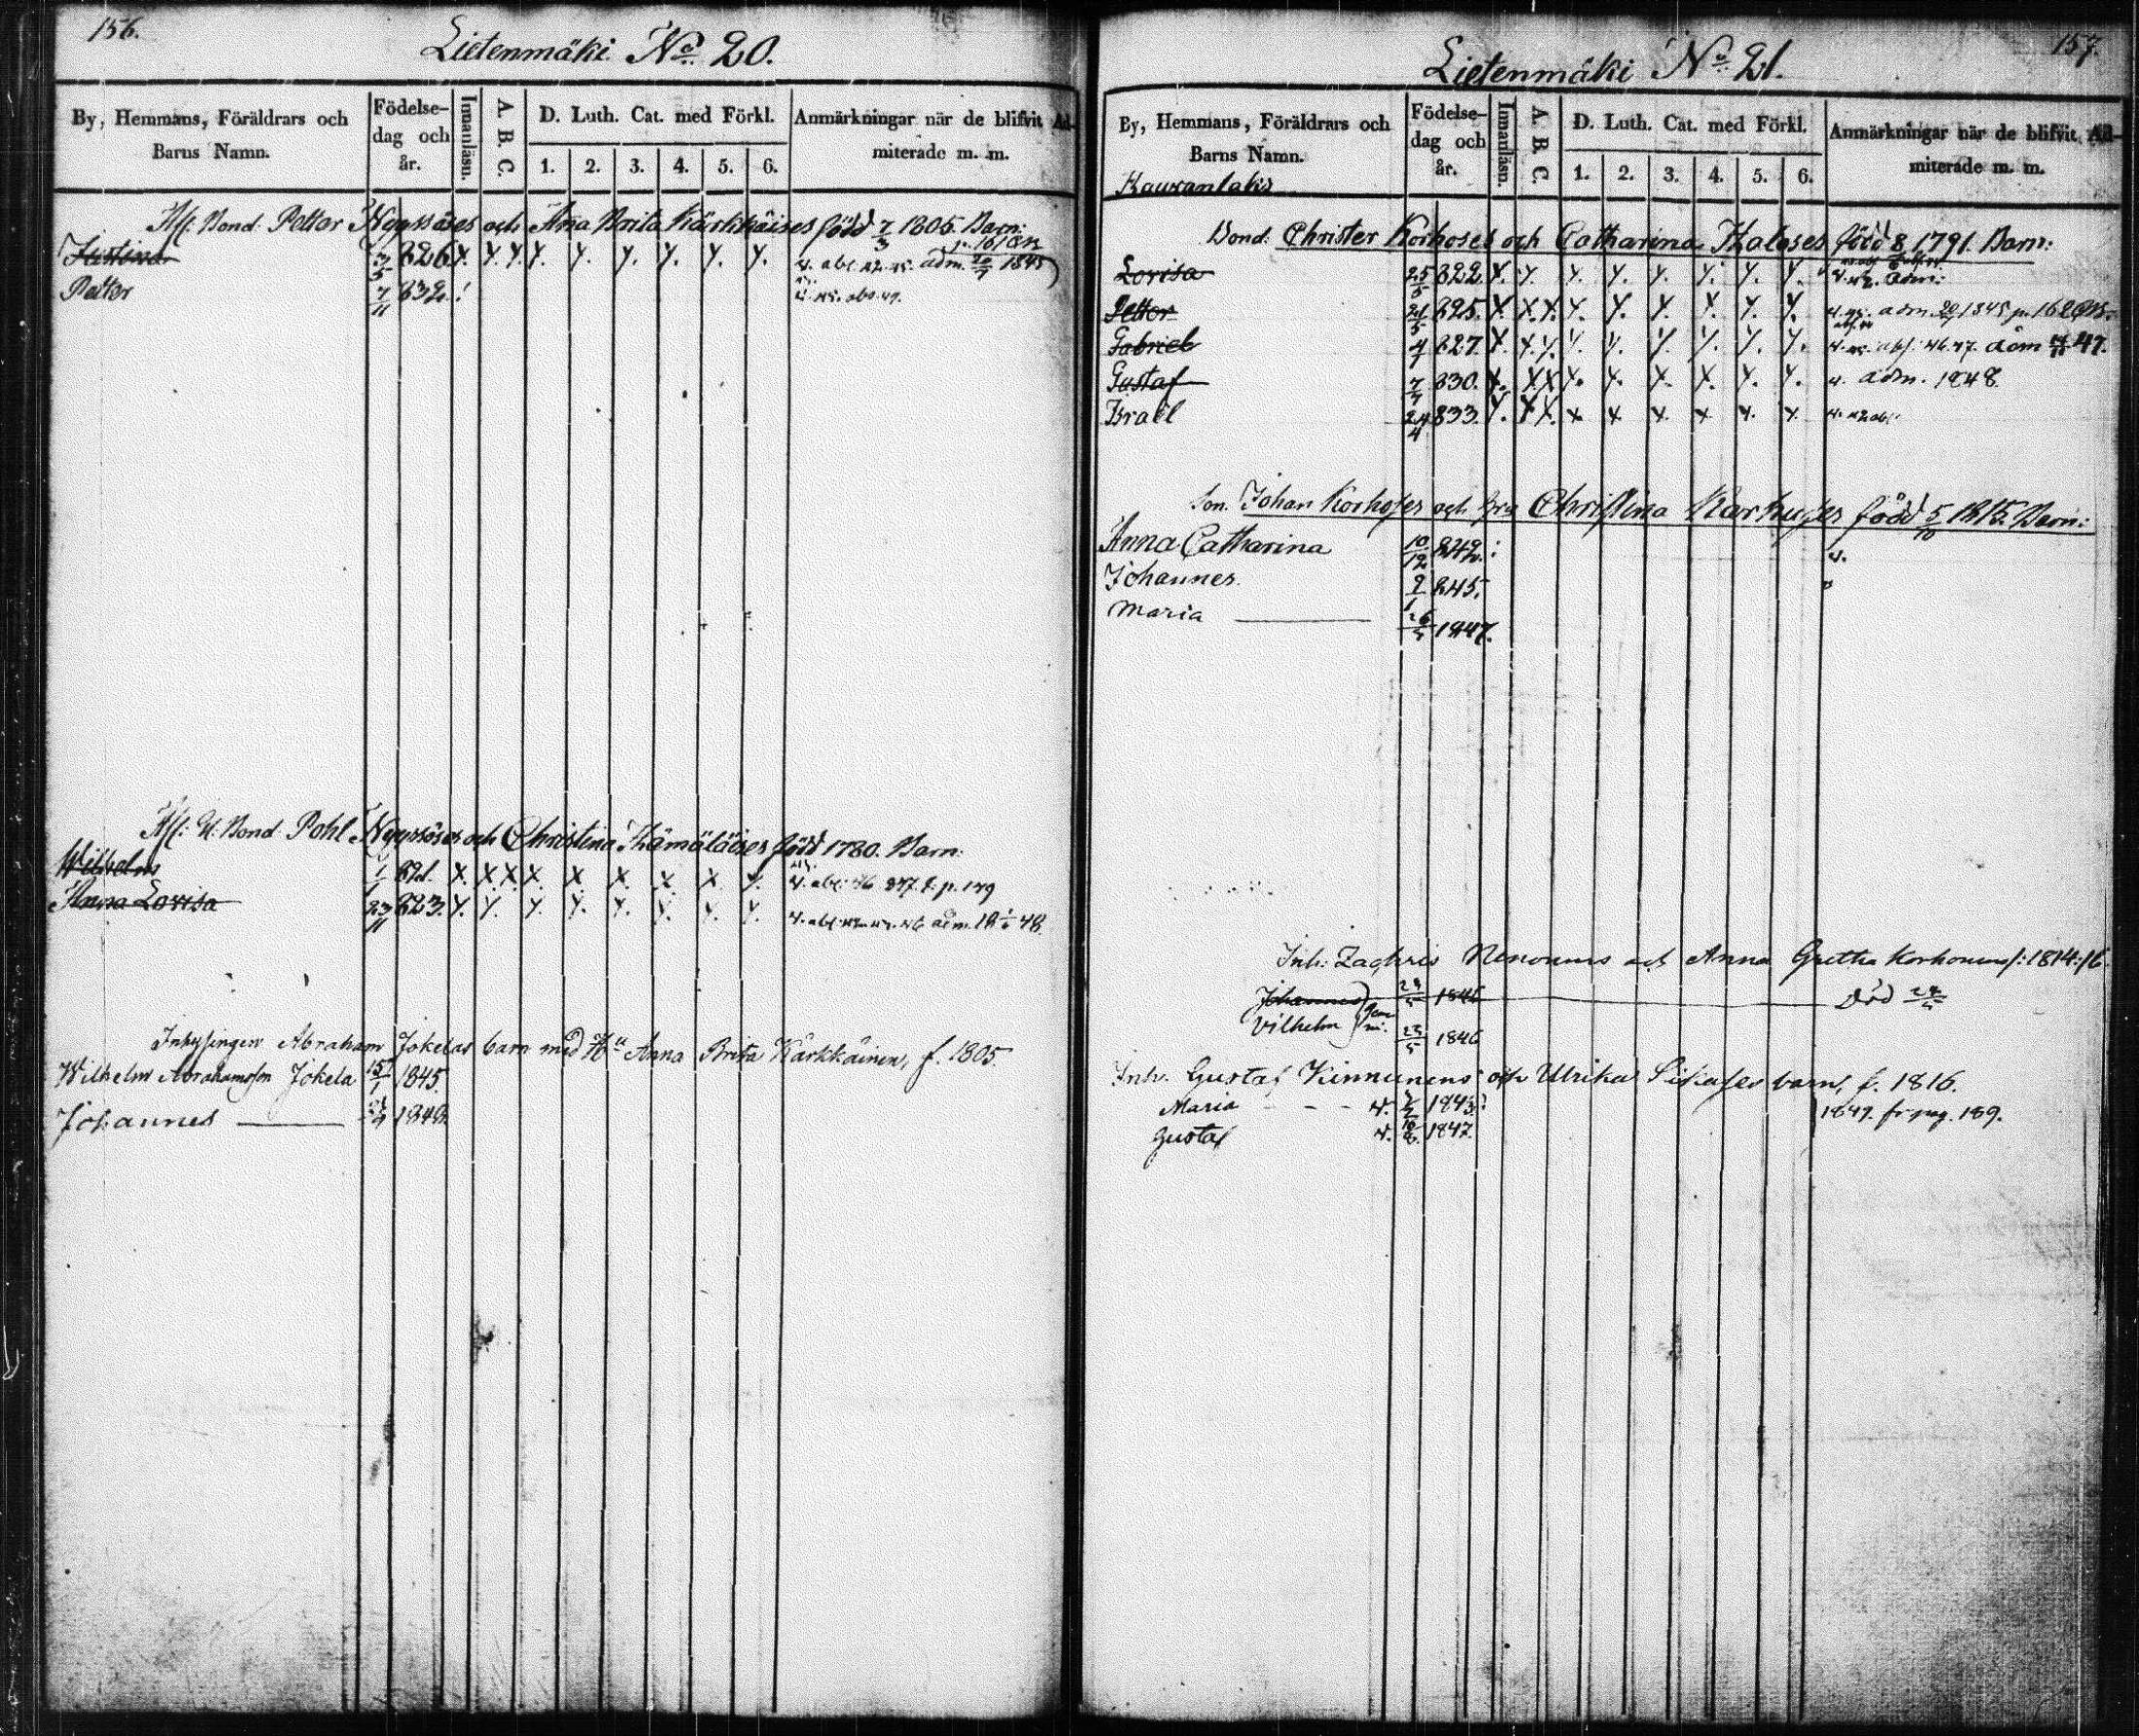 156.
Lietenmäki No 20.
By, Hemmans, Föräldrars och Barns Namn.
Födelse-dag och år.
Innanläsn.
A B C.
D. Luth. Cat. med Förkl.
1. 2. 3. 4. 5. 6.
Anmärkningar när de blifvit Ad-miterade m. m.
Afl. Bond. Petter Nyyssöses och Ana Brita Kärkkäises född 7/3 1805. Barn:
Justina 3/5 826. Y. Y. Y. Y. Y. Y. Y. Y. Y. adm. 20/7 1845
Petter 7/11 832.
Afl. Bond Pohl Nyyssöses och Christina Hämäläises född 1780. Barn:
Wilhelm 1/1 821. X. X X X. X X. X. X Y. p. 149
Anna Lovisa 23/11 823. Y. Y. Y. Y. Y. Y. Y. Y. adm. 48.
Inhysingen Abraham Jokelas barn med Anna Brita Kärkkäinen, f. 1805
Wilhelm Abrahamsson Jokela 15/1 1845
Johannes 1848
157.
Lietenmäki No 21.
By, Hemmans, Föräldrars och Barns Namn.
Födelse-dag och år.
Innanläsn.
A B C.
D. Luth. Cat. med Förkl.
1. 2. 3. 4. 5. 6.
Anmärkningar när de blifvit Ad-miterade m. m.
Bond. Christer Korhoses och Catharina Haloses född 8 1791. Barn:
Lovisa 25/5 822. Y. Y. Y. Y. Y. Y. Y. Y. adm:
Petter 21/5 825. Y. X. X. Y. Y. Y. Y. Y. Y. adm. 20/7 1845 p. 162
Gabriel 4/1 827. Y. Y. Y. Y. Y. Y. Y. Y. Y. 46. 47. adm 47.
Gustaf 7/7 830. X. X X X. X. X. X. Y. Y. adm. 1848
Israel 24/4 833. Y. Y X. x x x. x x. x.
Son. Johan Korhoses och Christina Karhuses född 5/10 1815. Barn:
Anna Catharina 10/12 842.
Johannes. 2/1 845.
Maria 26/5 1847.
Inh: Zachris Nenonens och Anna Gretha Korhonens f: 1814: /6
Johannes 1846 Död
Vilhelm 23/5 1846
Inh. Gustaf Kinnunens och Ulrika Sikases barn, f. 1816.
Maria 1843. 1847. fr. pag. 189.
Gustaf 1847.